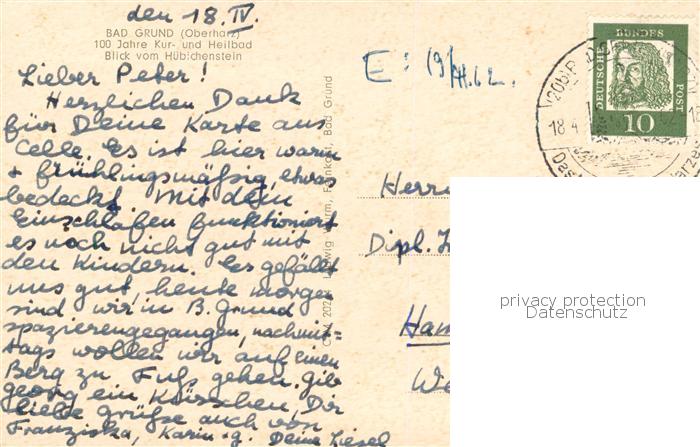 den 18. IV.
BAD GRUND (Oberharz)
100 Jahre Kur- und Heilbad
Blick vom Hübichenstein
Lieber Peter!
Herzlichen Dank
für Deine Karte aus
Celle. Es ist hier warm
+ frühlingsmäßig, etwas
bedeckt. Mit dem
Einschlafen funktioniert
es noch nicht gut mit
den Kindern. Es gefällt
uns gut, heute morgen
sind wir in B. Grund
spazierengegangen, nachmit-
tags wollen wir auf einen
Berg zu Fuß gehen. Gib
Georg ein Küsschen, Dir
liebe Grüße auch von
Franziska, Karin + g. Deine Liesel
Ludwig Wurm, Bad Grund
E: 19/4.62.
DEUTSCHE BUNDESPOST
10
18.4.
Herrn
Dipl.
Ham
We
privacy protection
Datenschutz